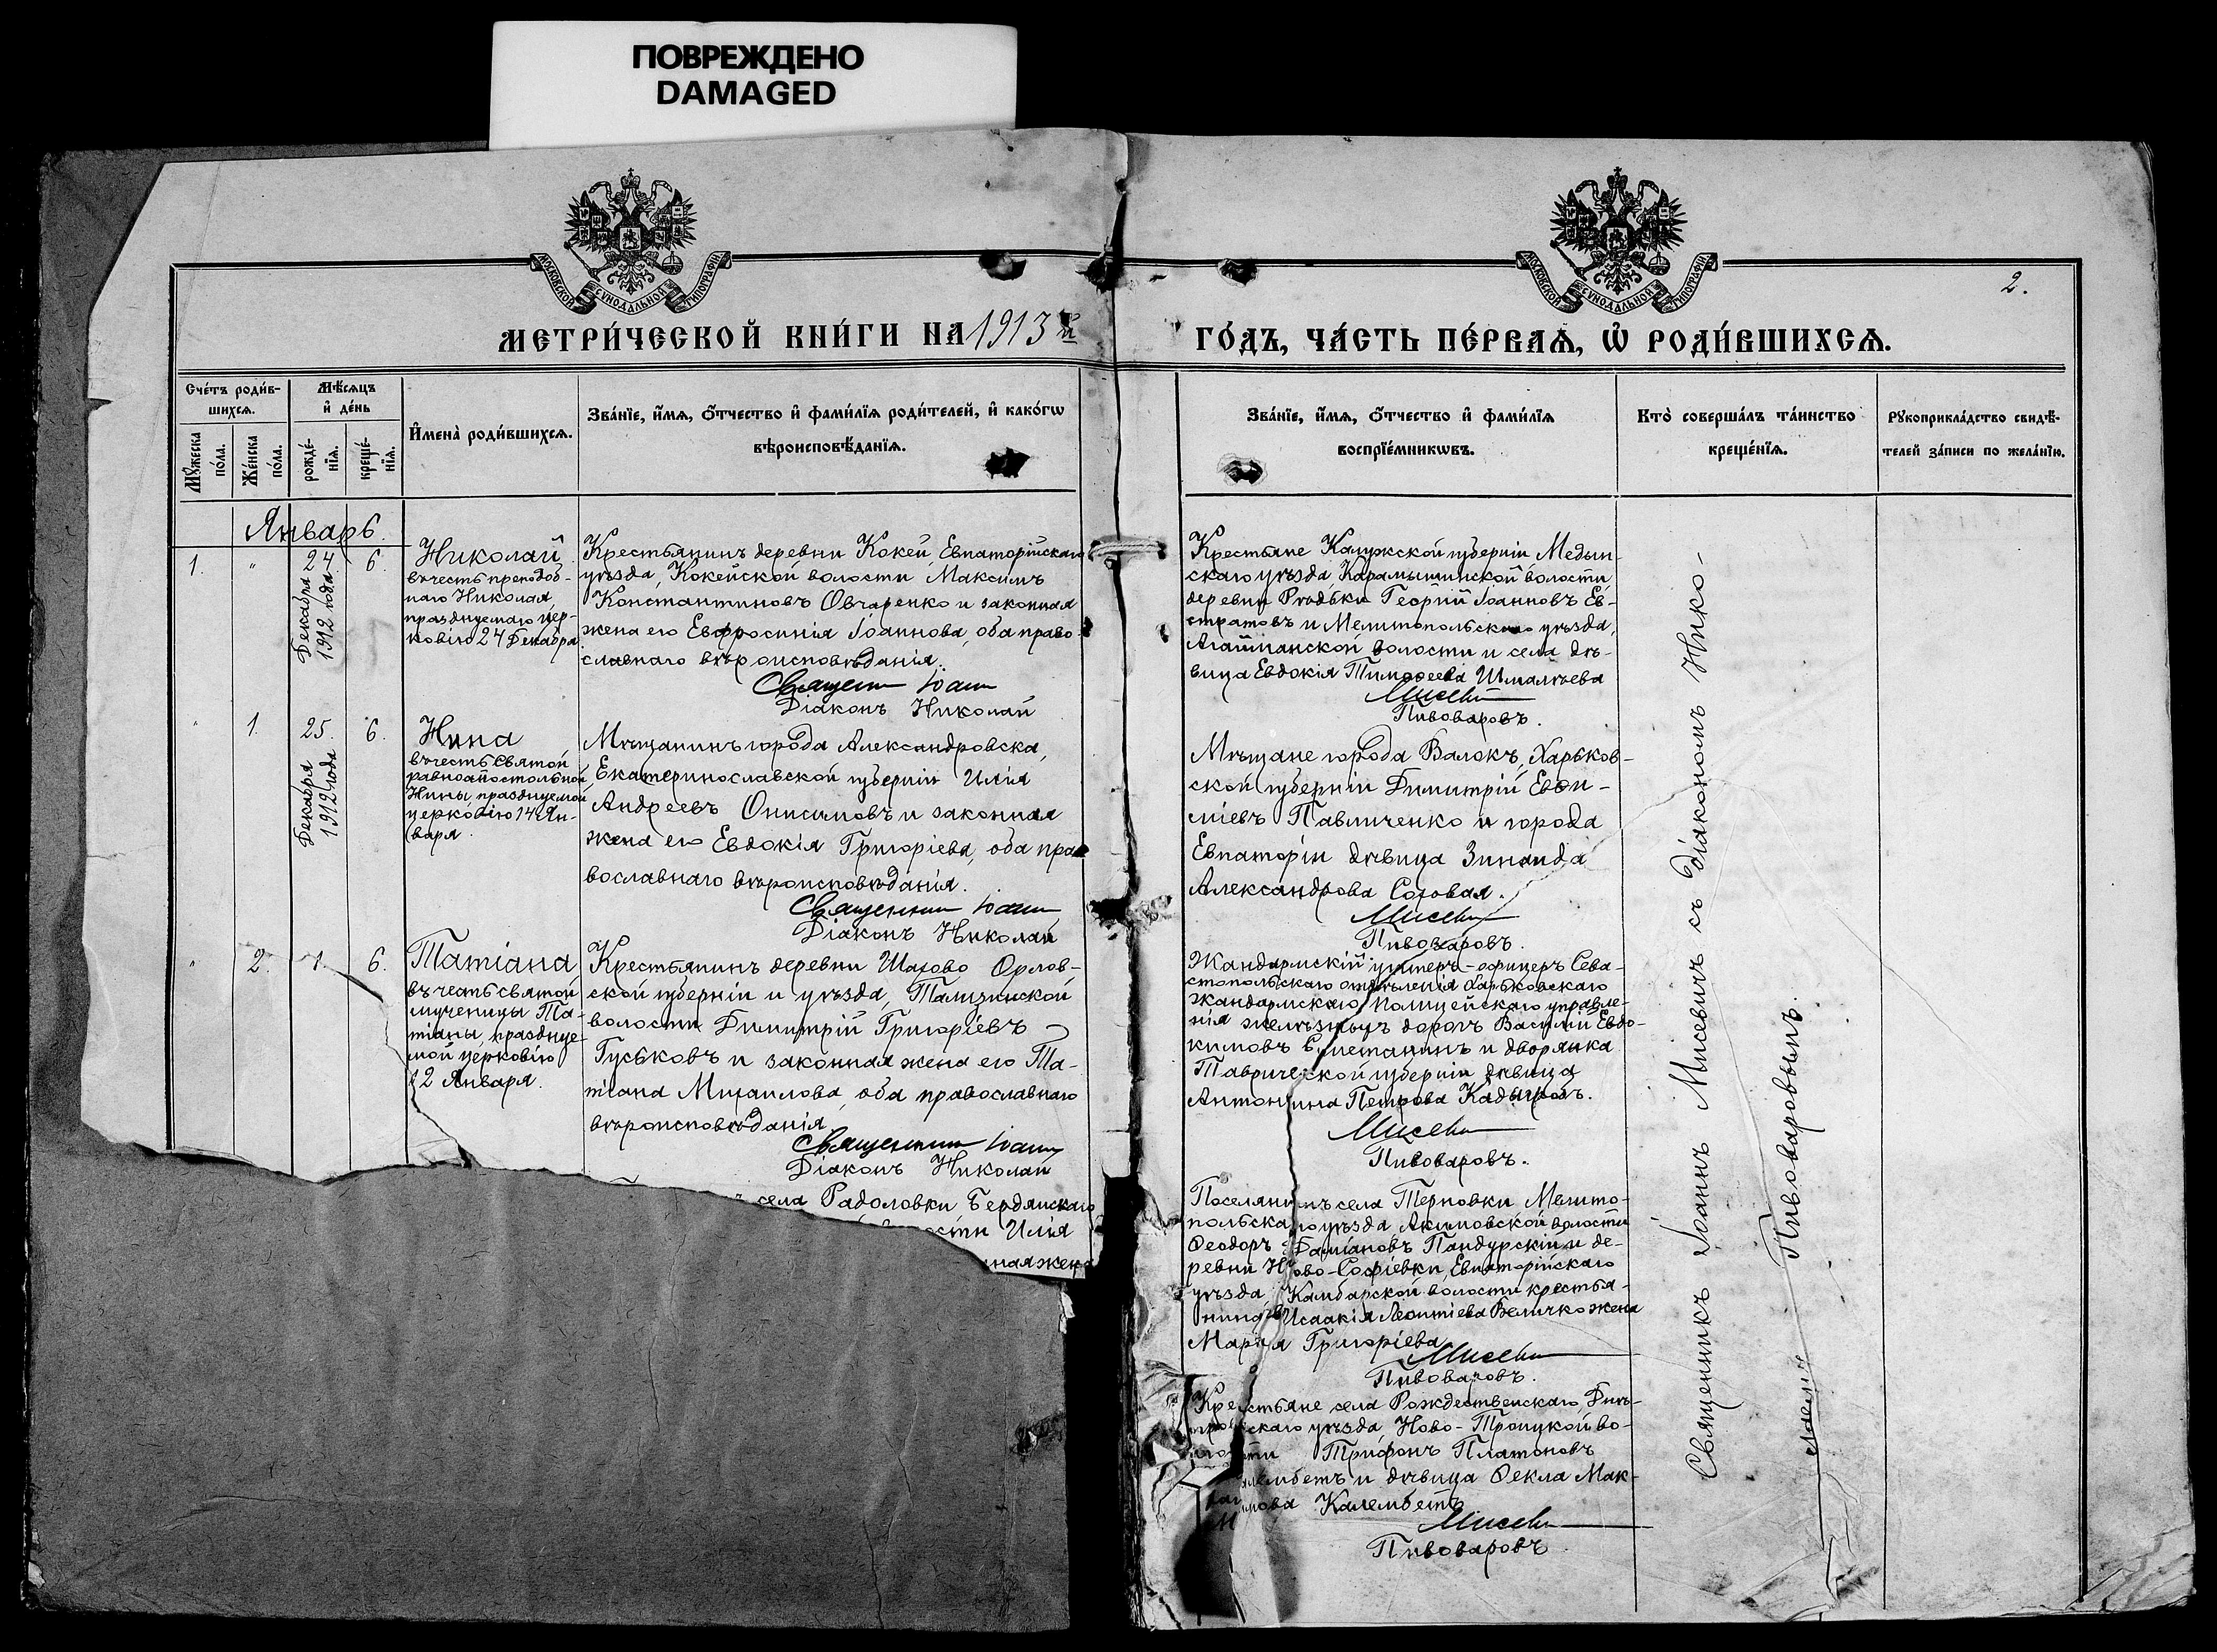 ПОВРЕЖДЕНО
DAMAGED
МОСКОВСКОЙ СѴНОДАЛЬНОЙ ТИПОГРАФІИ
МОСКОВСКОЙ СѴНОДАЛЬНОЙ ТИПОГРАФІИ
2.
МЕТРИ́ЧЕСКОЙ КНИ́ГИ НА 1913 й
ГО́ДЪ, ЧА́СТЬ ПЕ́РВАѦ, Ѡ҆ РОДИ́ВШИХСѦ.
Сче́тъ роди́в-
шихсѧ.
Мѣ́сѧцъ
и҆ де́нь
Мꙋ́жеска
по́ла.
Же́нска
по́ла.
рожде́-
нїѧ.
креще́-
нїѧ.
И҆мена̀ роди́вшихсѧ.
Зва́нїе, и҆́мѧ, ѻ҆́тчество и҆ фами́лїѧ роди́телей, и҆ како́гѡ
вѣроисповѣ́данїѧ.
Зва́нїе, и҆́мѧ, ѻ҆́тчество и҆ фами́лїѧ
воспрїе́мникѡвъ.
Кто̀ соверша́лъ та́инство
креще́нїѧ.
Рꙋкоприкла́дство свидѣ́-
телей за́писи по жела́нїю.
Январь.
1.
"
24
Декабря
1912 года
6.
Николай
въ честь преподоб-
наго Николая,
празднуемаго цер-
ковію 24 Декабря.
Крестьянинъ деревни Кокей, Евпаторійскаго
уѣзда, Кокейской волости Максимъ
Константиновъ Овчаренко и законная
жена его Евфросинія Іоаннова, оба право-
славнаго вѣроисповѣданія.
Священн Іоанн
Діаконъ Николай
Крестьяне Калужской губерніи Медын-
скаго уѣзда, Карамышинской волости
деревни Георгій Іоанновъ Ев-
стратовъ и Мелитопольскаго уѣзда,
Агайманской волости и села дѣ-
вица Евдокія Тимофеева Шмалѣева
Мисевич
Пивоваровъ.
"
1.
25.
Декабря
1912 года
6.
Нина
въ честь святой
равноапостольной
Нины, празднуемой
церковію 14 Ян-
варя.
Мѣщанинъ города Александровска,
Екатеринославской губерніи Илія
Андреевъ Онисимовъ и законная
жена его Евдокія Григоріева, оба пра-
вославнаго вѣроисповѣданія.
Священник Іоанн
Діаконъ Николай
Мѣщане города Валокъ, Харьков-
ской губерніи Димитрій Евѳи-
міевъ Павличенко и города
Евпаторіи дѣвица Зинаида
Александрова Соговая.
Мисевич
Пивоваровъ.
"
2.
1.
6.
Татіана
въ честь святой
мученицы Та-
тіаны, празднуе-
мой церковію
12 Января.
Крестьянинъ деревни Шахово Орлов-
ской губерніи и уѣзда, Тализинской
волости Димитрій Григоріевъ
Гуськовъ и законная жена его Та-
тіана Михаилова, оба православнаго
вѣроисповѣданія.
Священник Іоанн
Діаконъ Николай
Жандармскій унтеръ-офицеръ Сева-
стопольскаго отдѣленія Харьковскаго
жандармскаго полицейскаго управле-
нія желѣзныхъ дорогъ Василій Евдо-
кимовъ Сметанинъ и дворянка
Таврической губерніи дѣвица
Антонина Петрова Кадыгробъ.
Мисевич
Пивоваровъ.
села Радоловки Бердянскаго
ости Илія
ная жена
Поселянинъ села Терновки, Мелито-
польскаго уѣзда Акимовской волости
Ѳеодоръ Даміановъ Пандурскій и де-
ревни Ново-Софіевки, Евпаторійскаго
уѣзда, Камбарской волости крестья-
нина Исаакія Леонтіева Величко жена
Марія Григоріева
Мисевич
Пивоваровъ.
Крестьяне села Рождественскаго, Днѣ-
провскаго уѣзда, Ново-Троицкой во-
лости Трифонъ Платоновъ
Калембетъ и дѣвица Ѳекла Мак-
симова Калембетъ
Мисевич
Пивоваровъ.
Священникъ Іоаннъ Мисевичъ съ діакономъ Нико-
лаемъ Пивоваровымъ.